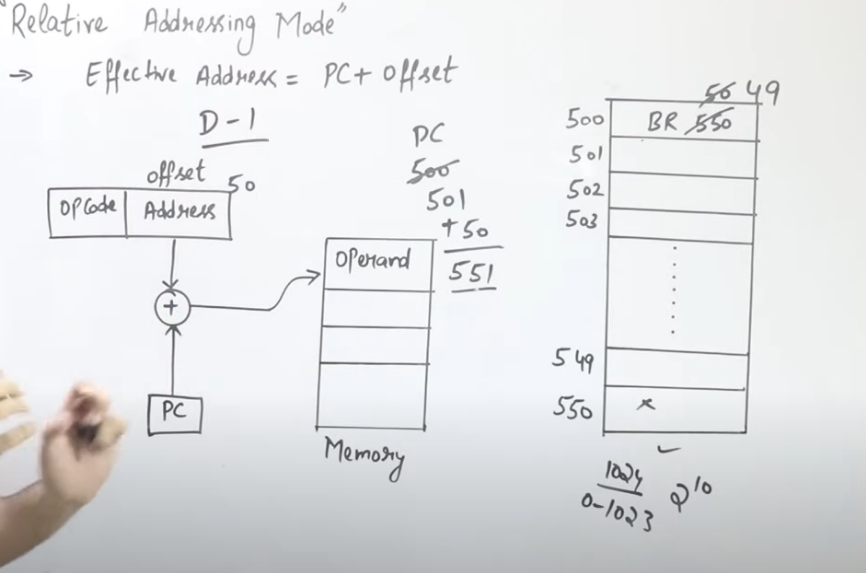 "Relative Addressing Mode"
→ Effective Address = PC + Offset
D-1
offset 50
OPCode Address
+
PC
PC
500
501
+50
551
Operand
Memory
50 49
500 BR 550
501
502
503
549
550 x
1024
0-1023
2^10